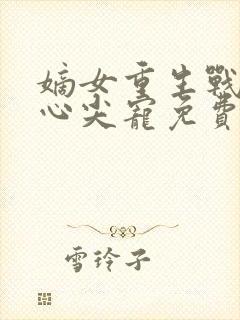 嫡女重生戰
心尖寵免費
雪玲子